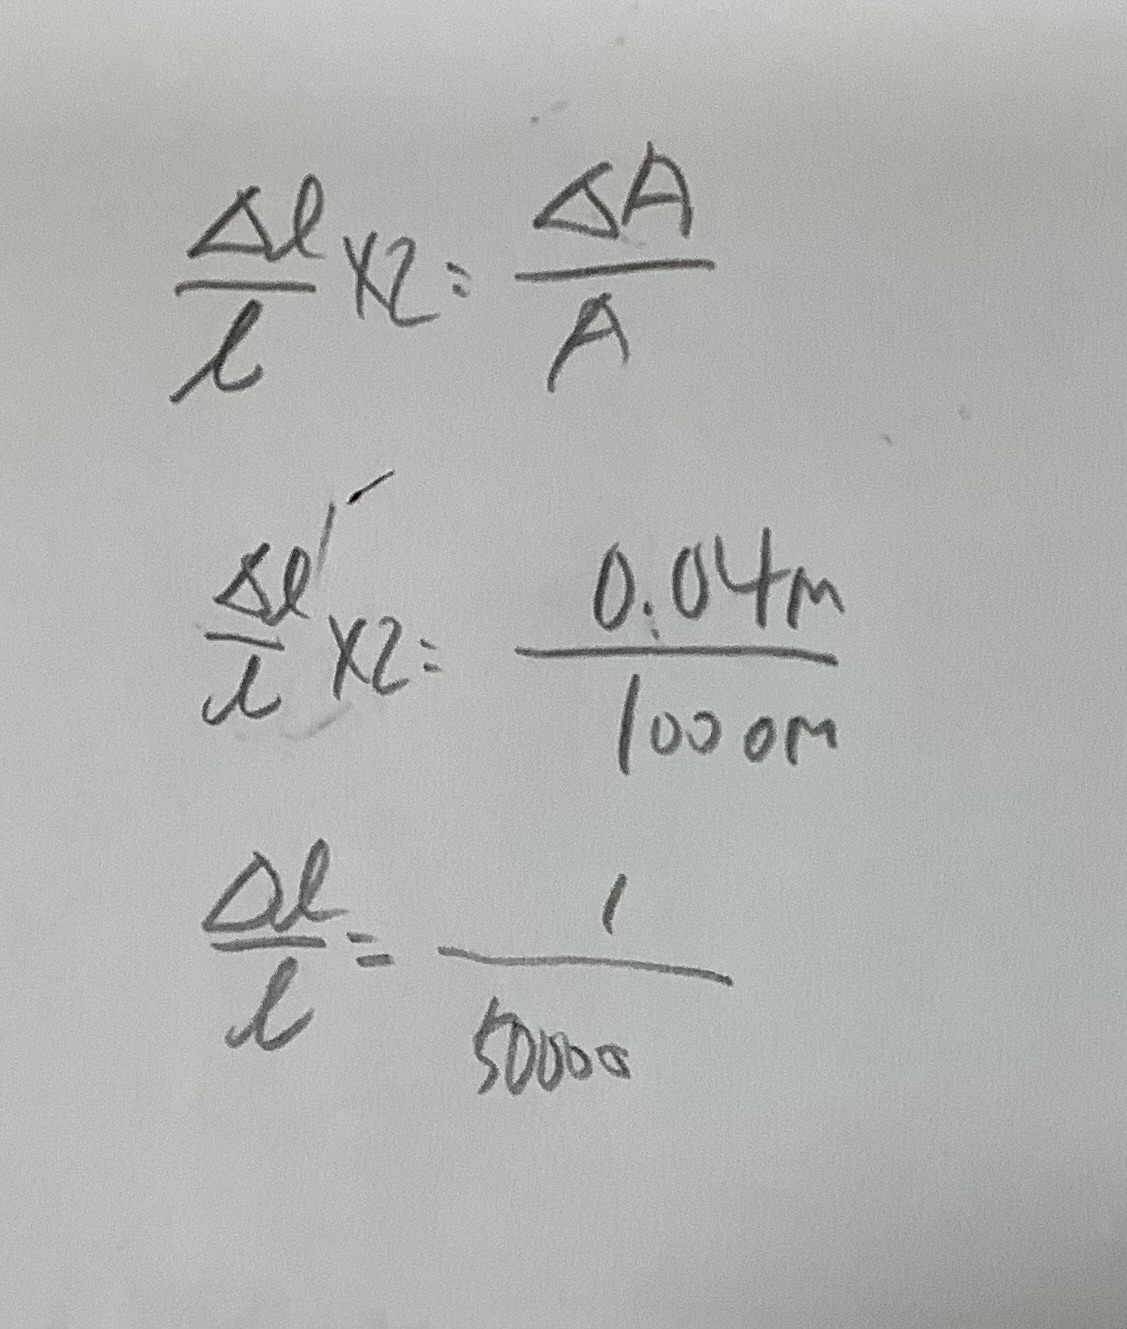 Δl/l ×2 = ΔA/A
Δl/l ×2 = 0.04m/1000m
Δl/l = 1/50000